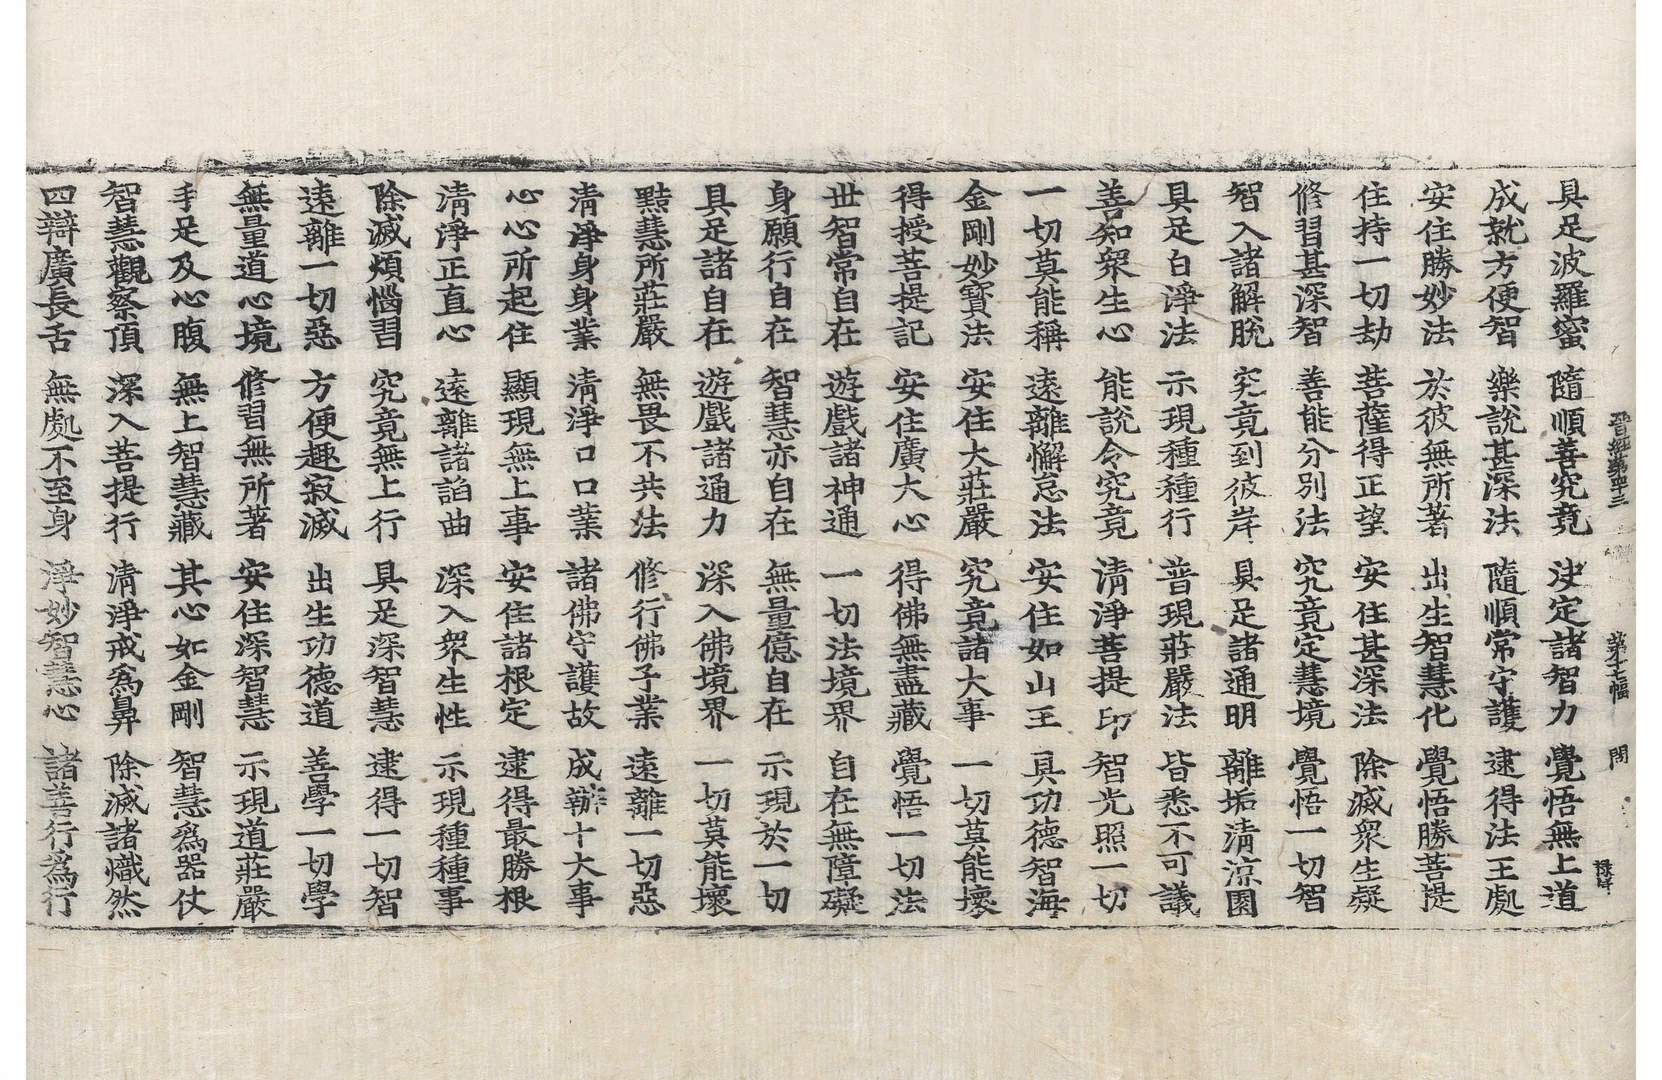 晉經第四三 第十七幅 問
具足波羅蜜 隨順善究竟 決定諸智力 覺悟無上道
成就方便智 樂說甚深法 隨順常守護 逮得法王處
安住勝妙法 於彼無所著 出生智慧化 覺悟勝菩提
住持一切劫 菩薩得正望 安住甚深法 除滅衆生礙
修習甚深智 善能分別法 究竟定慧境 覺悟一切智
智入諸解脫 究竟到彼岸 具足諸通明 離垢清涼園
具足白淨法 示現種種行 普現莊嚴法 皆悉不可議
善知衆生心 能說令究竟 清淨菩提印 智光照一切
一切莫能稱 遠離懈怠法 安住如山王 具功德智海
金剛妙寶法 安住大莊嚴 究竟諸大事 一切莫能壞
得授菩提記 安住廣大心 得佛無盡藏 覺悟一切法
世智常自在 遊戲諸神通 一切法境界 自在無障礙
身願行自在 智慧亦自在 無量億自在 示現於一切
具足諸自在 遊戲諸通力 深入佛境界 一切莫能壞
黠慧所莊嚴 無畏不共法 修行佛子業 遠離一切惡
清淨身身業 清淨口口業 諸佛守護故 成辦十大事
心心所起住 顯現無上事 安住諸根定 逮得最勝根
清淨正直心 遠離諸諂曲 深入衆生性 示現種種事
除滅煩惱習 究竟無上行 具足深智慧 逮得一切智
遠離一切惡 方便趣寂滅 出生功德道 善學一切學
無量道心境 修習無所著 安住深智慧 示現道莊嚴
手足及心腹 無上智慧藏 其心如金剛 智慧爲器仗
智慧觀察頂 深入菩提行 清淨戒爲鼻 除滅諸熾然
四辯廣長舌 無處不至身 淨妙智慧心 諸善行爲行